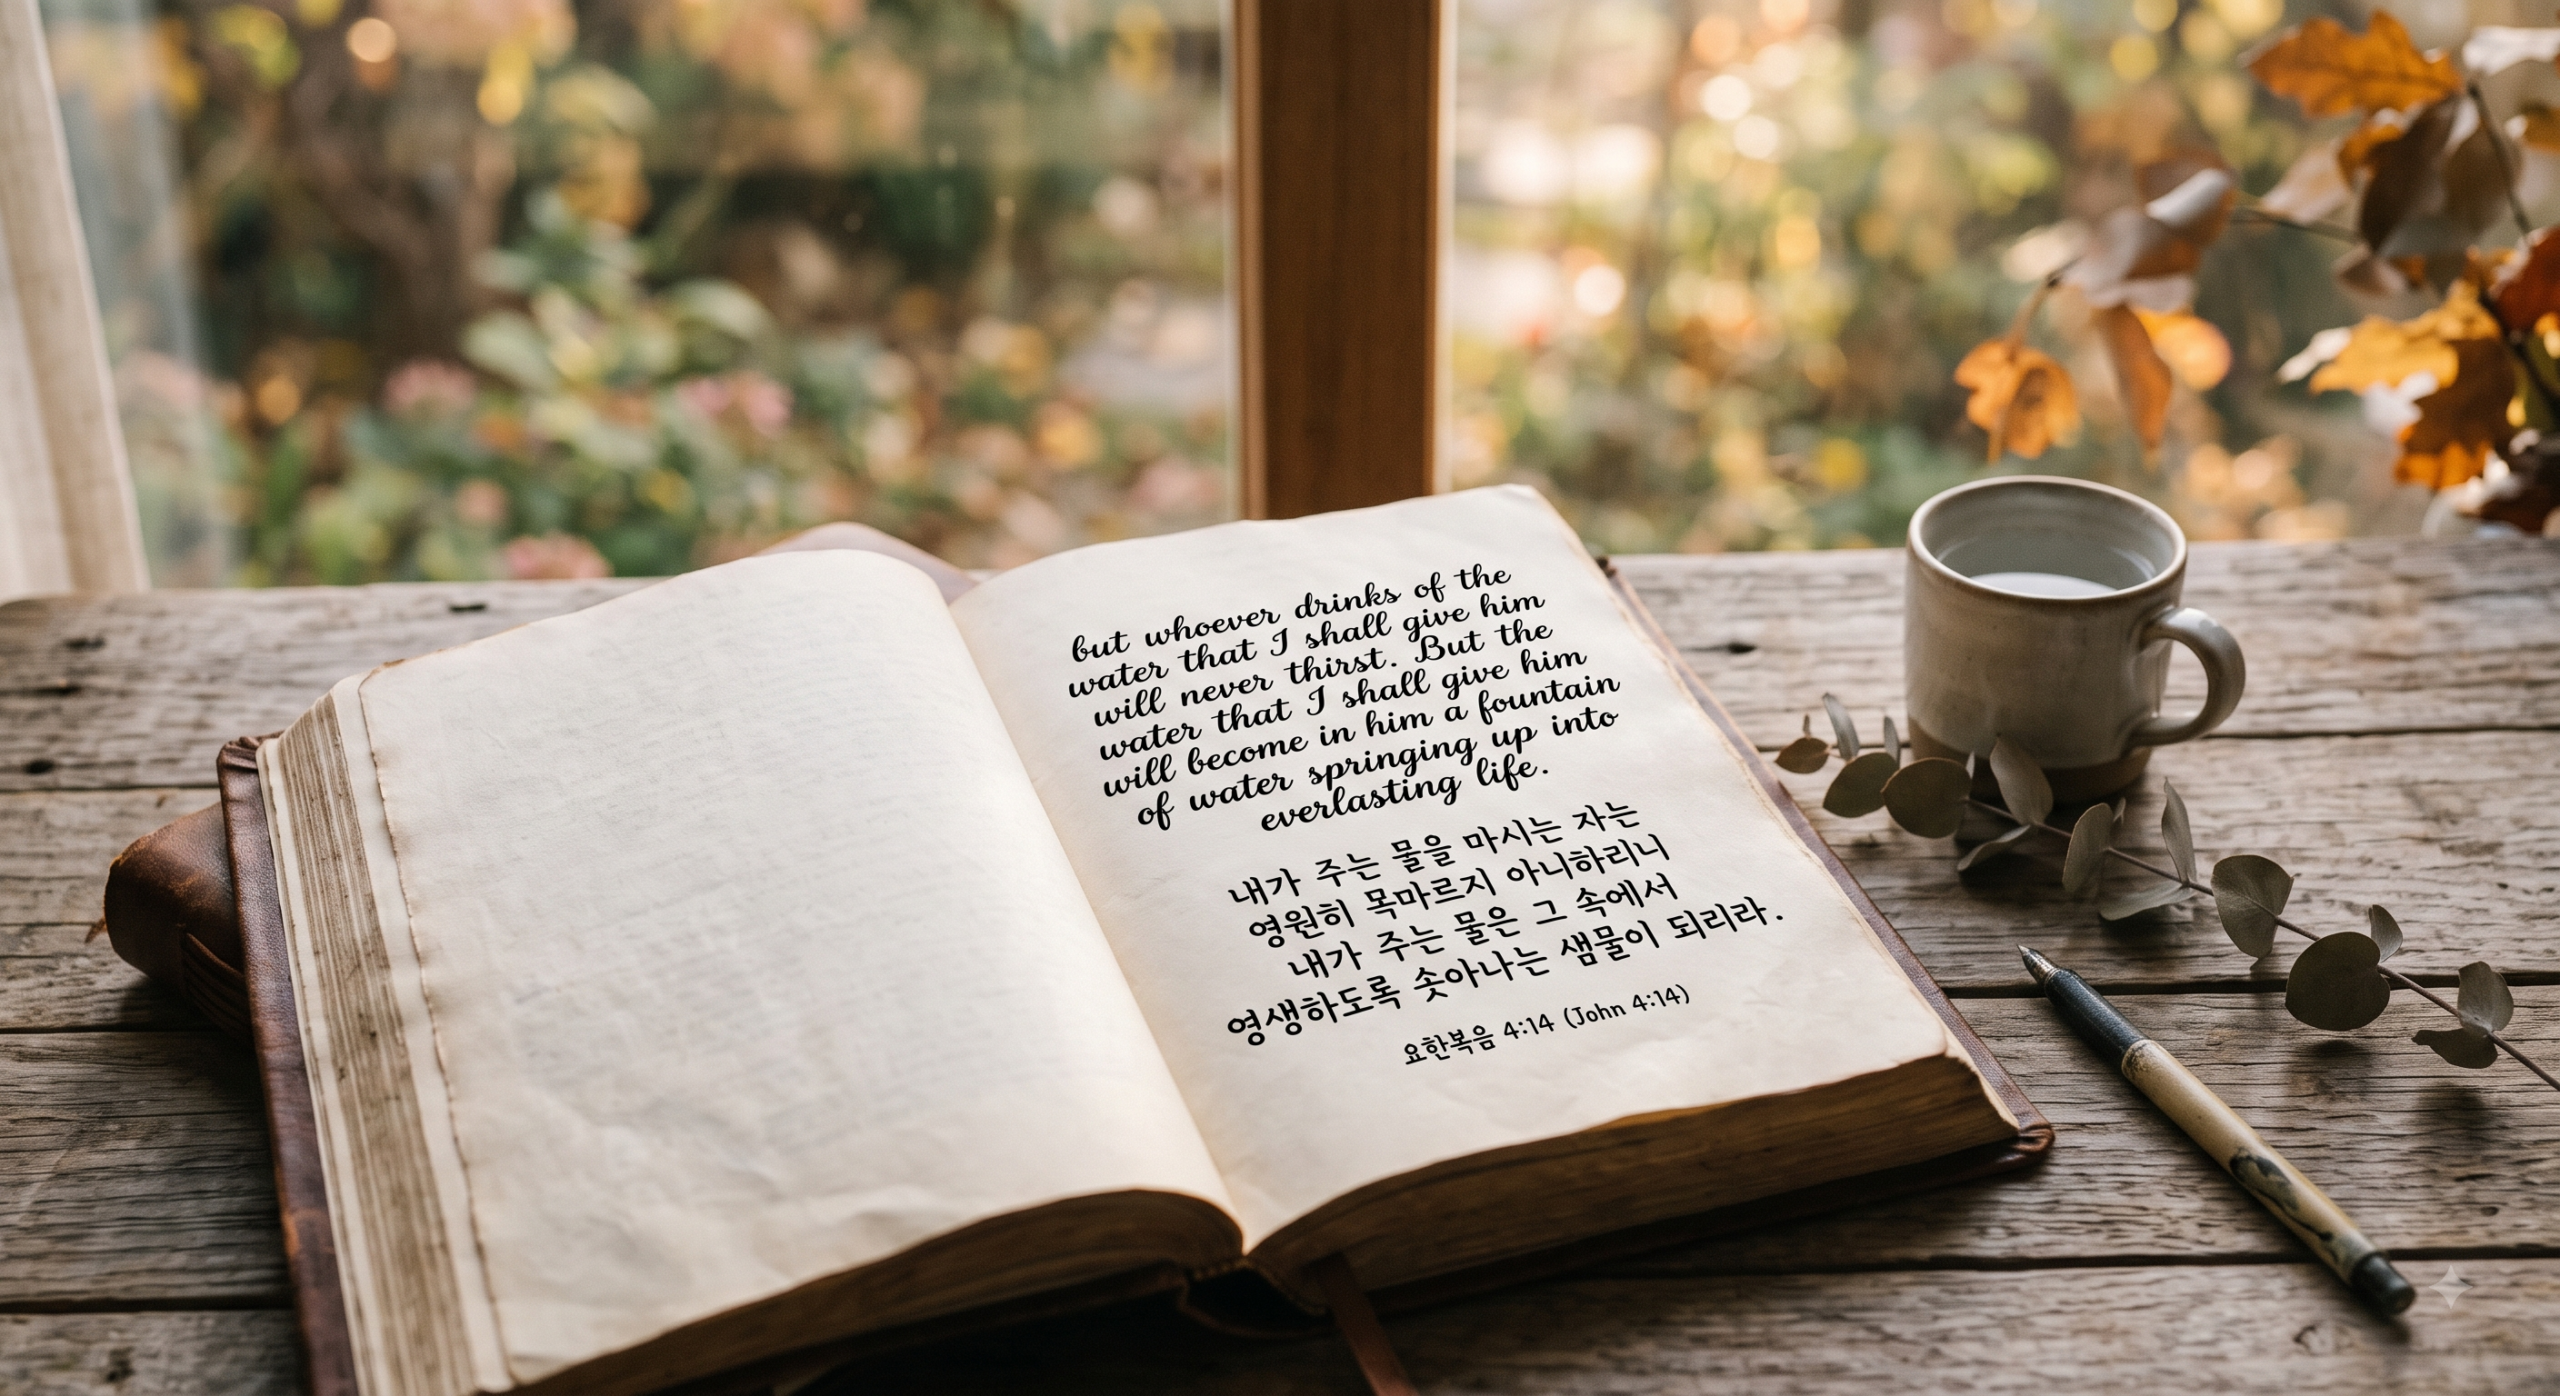 but whoever drinks of the
water that I shall give him
will never thirst. But the
water that I shall give him
will become in him a fountain
of water springing up into
everlasting life.
내가 주는 물을 마시는 자는
영원히 목마르지 아니하리니
내가 주는 물은 그 속에서
영생하도록 솟아나는 샘물이 되리라.
요한복음 4:14 (John 4:14)